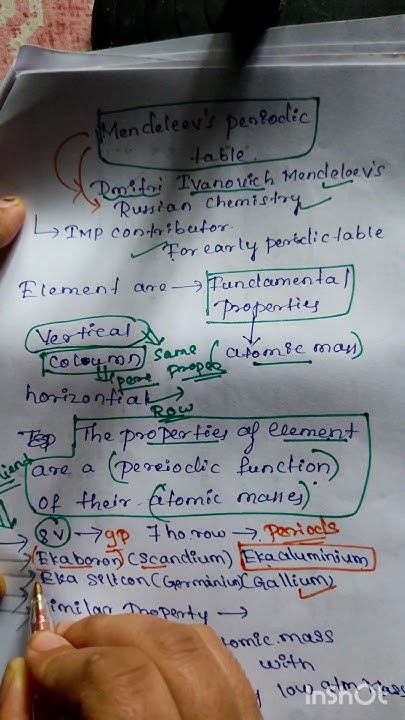 Mendeleev's periodic
table.
Dmitri Ivanovich Mendeleev's
Russian Chemistry
IMP contributor.
For early periodic table
Element are → Fundamental
Properties
Vertical same (atomic mass)
Coloumn propee
horizontial → Row
The properties of element
are a (pereiodic function)
of their (atomic masses)
8V → gp 7 ho.row → periods
(Ekaboron (Scandium) Ekaaluminium
Eka Selicon (Germinium) (Gallium)
Similar Property →
atomic mass
with
low
InShOt